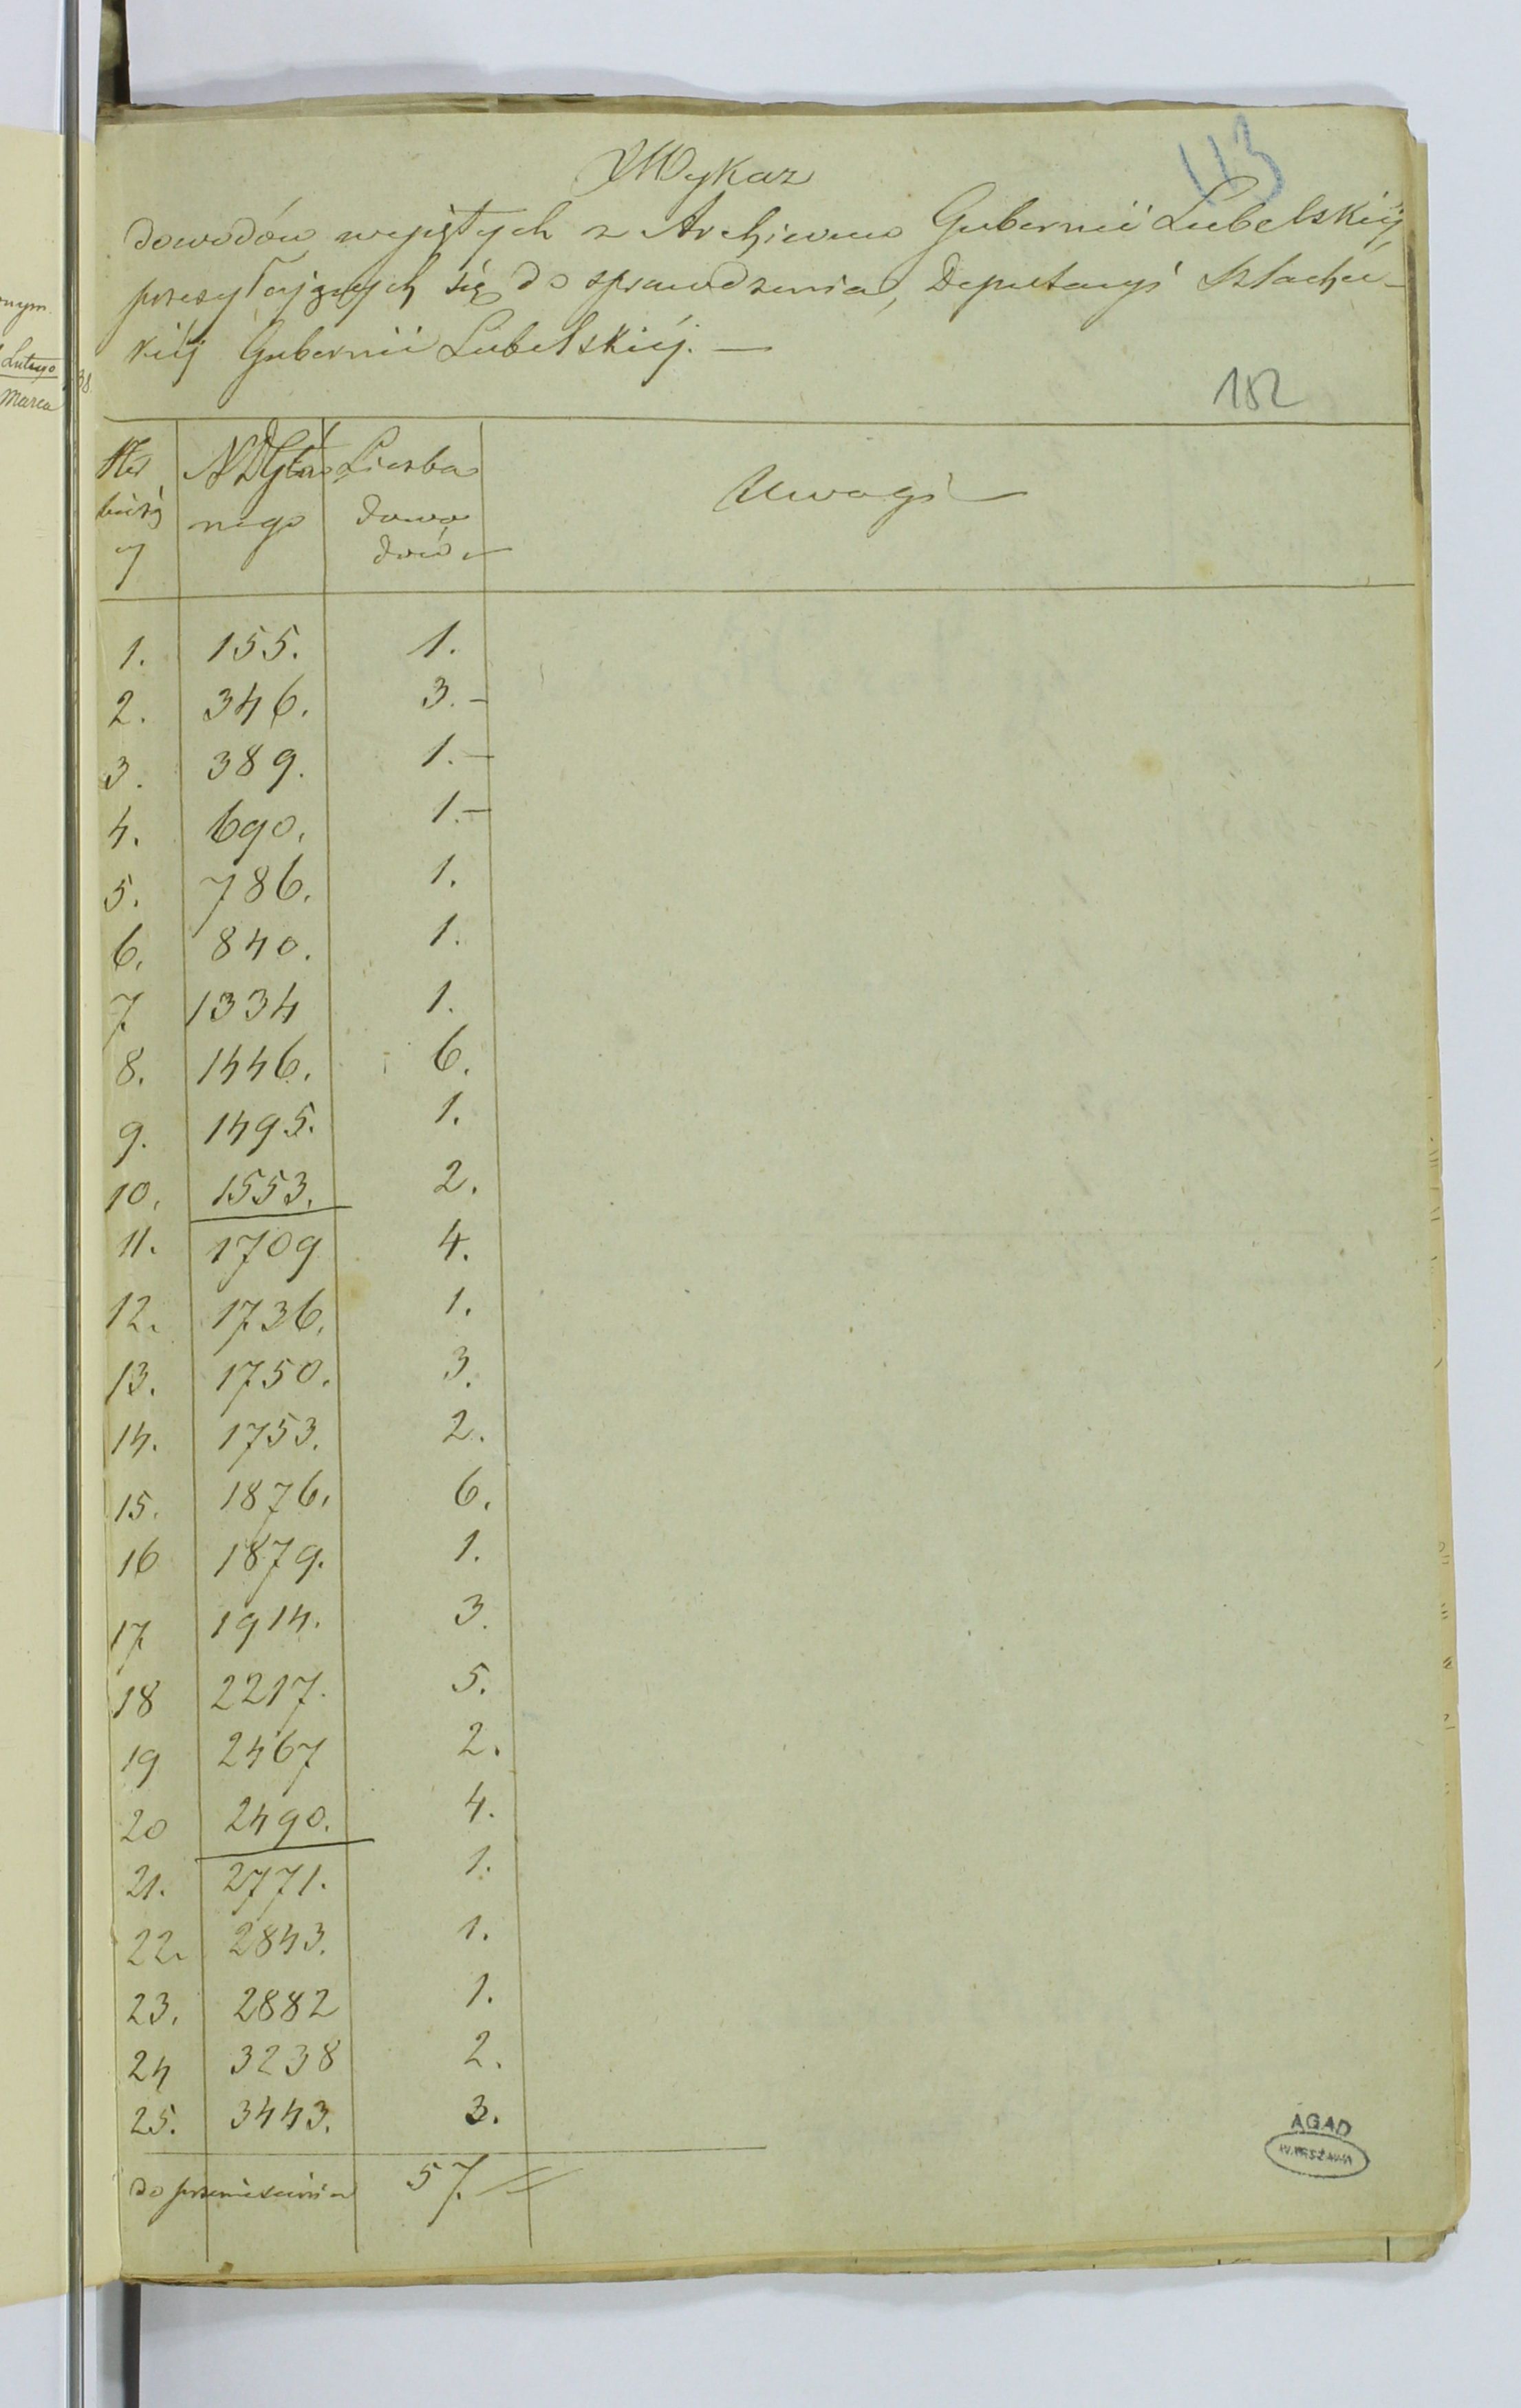 113
Wykaz
dowodów wyjętych z Archiwum Gubernii Lubelskiéj,
przesyłających się do sprawdzenia, Deputacyi Szlachec-
kiéj Gubernii Lubelskiéj. —
182
Liczba
nego dowo Uwagi
dów
1. 155. 1.
2. 346. 3. -
3. 389. 1. -
4. 690. 1. -
5. 786. 1.
6. 840. 1.
7 1334 1.
8. 1446. 6.
9. 1495. 1.
10. 1553. 2.
11. 1709 4.
12. 1736. 1.
13. 1750. 3.
14. 1753. 2.
15. 1876. 6.
16 1879. 1.
17 1914. 3.
18 2217. 5.
19 2467 2.
20 2490. 4.
21. 2771. 1.
22. 2843. 1.
23. 2882 1.
24 3238 2.
25. 3443. 3.
do przeniesienia 57.
AGAD
WARSZAWA
Lutego
Marca